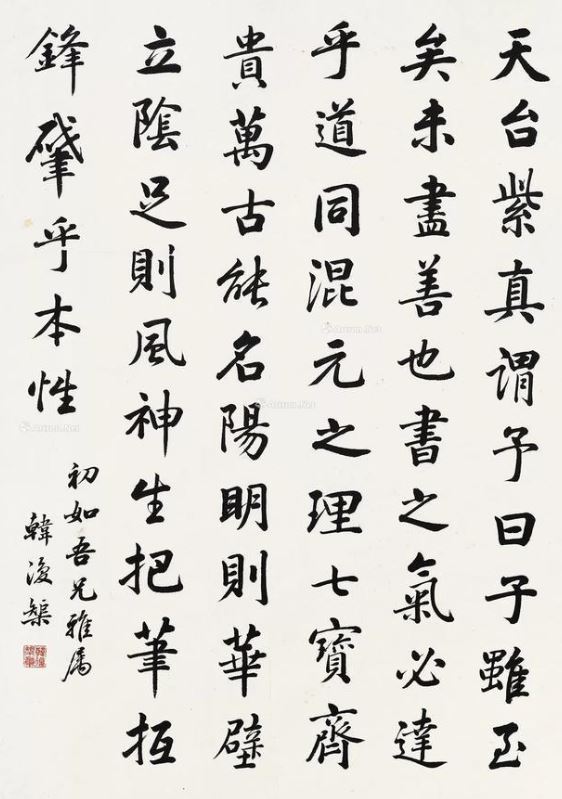 天台紫真謂予曰子雖至
矣未盡善也書之氣必達
乎道同混元之理七寶齊
貴萬古能名陽明則華壁
立陰足則風神生把筆抵
鋒肇乎本性
初如吾兄雅屬
韓復榘
Artron.Net
Artron.Net
Artron.Net
Artron.Net